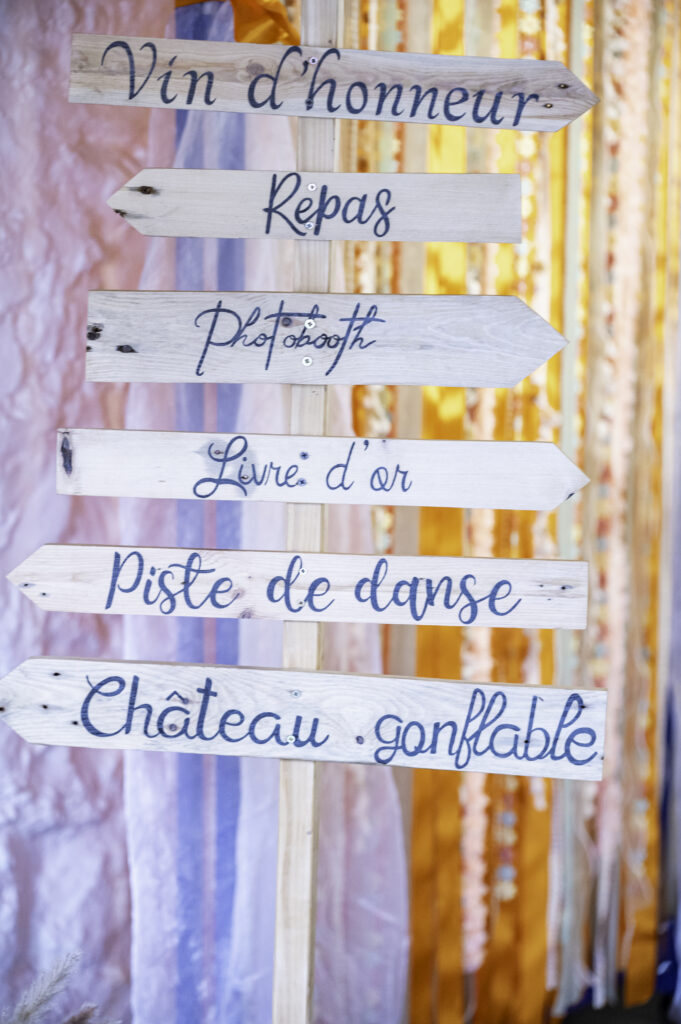 Vin d'honneur
Repas
Photobooth
Livre d'or
Piste de danse
Château gonflable